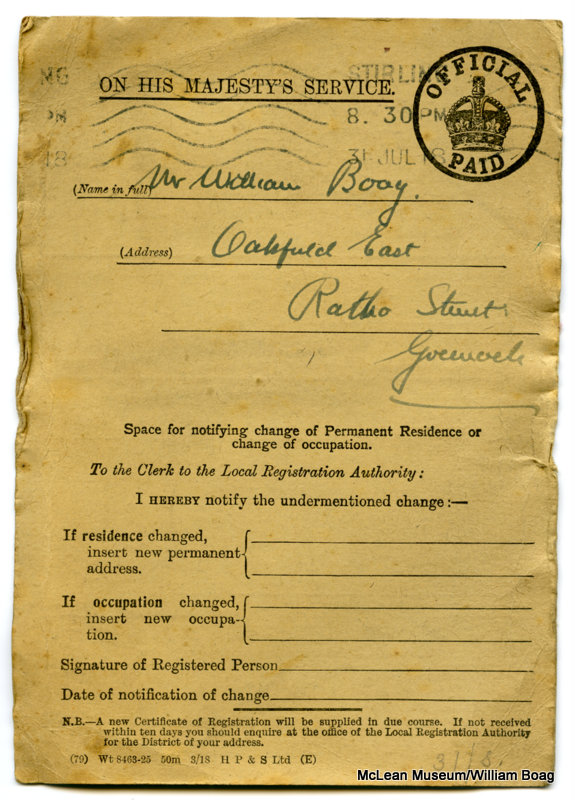 NG
STIRLIN
OFFICIAL
PAID
ON HIS MAJESTY'S SERVICE.
PM
8. 30 PM
18
31 JUL 18
(Name in full) Mr William Boag.
(Address) Oakfield East
Ratho Street
Greenock
Space for notifying change of Permanent Residence or
change of occupation.
To the Clerk to the Local Registration Authority:
I HEREBY notify the undermentioned change:—
If residence changed,
insert new permanent
address.
If occupation changed,
insert new occupa-
tion.
Signature of Registered Person
Date of notification of change
N.B.—A new Certificate of Registration will be supplied in due course. If not received
within ten days you should enquire at the office of the Local Registration Authority
for the District of your address.
(79) Wt 8463-25 50m 3/18 H P & S Ltd (E)
McLean Museum/William Boag